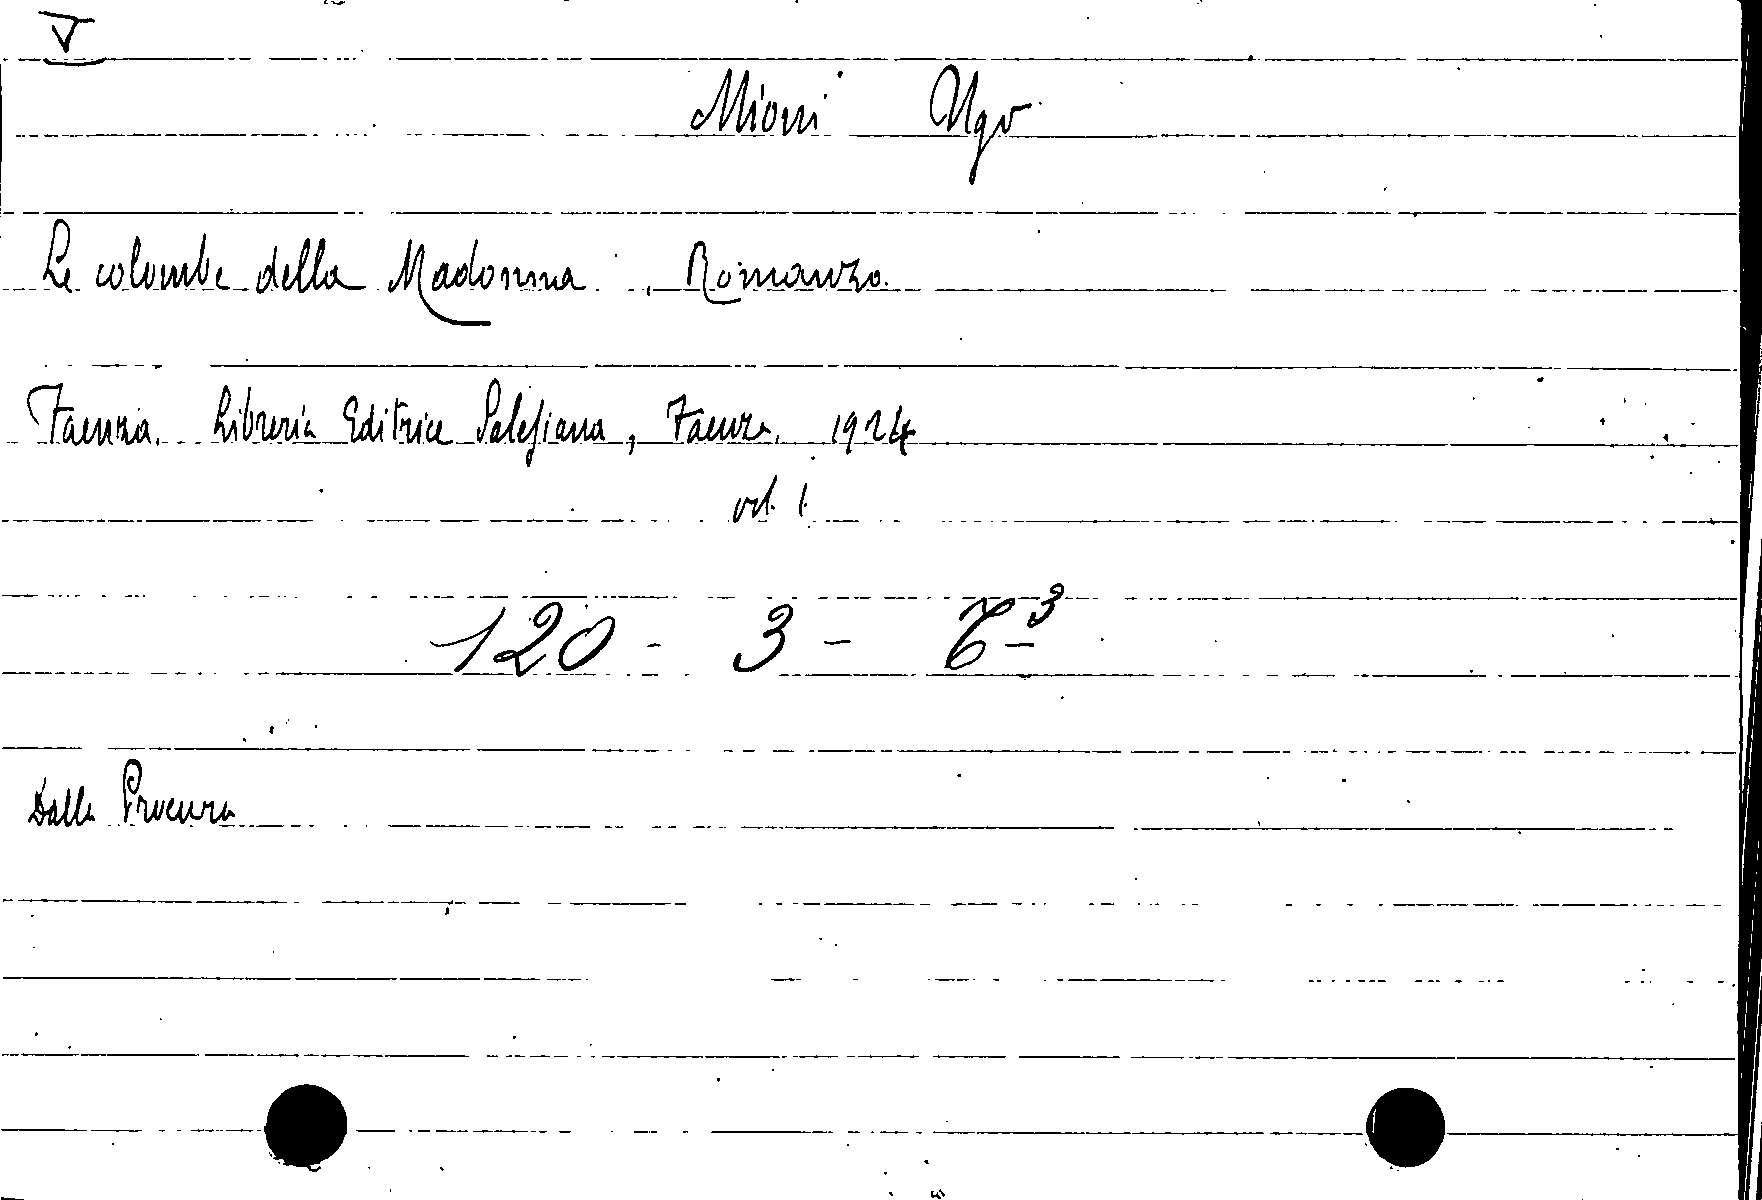 V
Mioni Ugo
Le colombe della Madonna. Romanzo.
Faenza. Libreria Editrice Salesiana, Faenza. 1924
vol. 1
120 - 3 - 6³
Dalla Procura